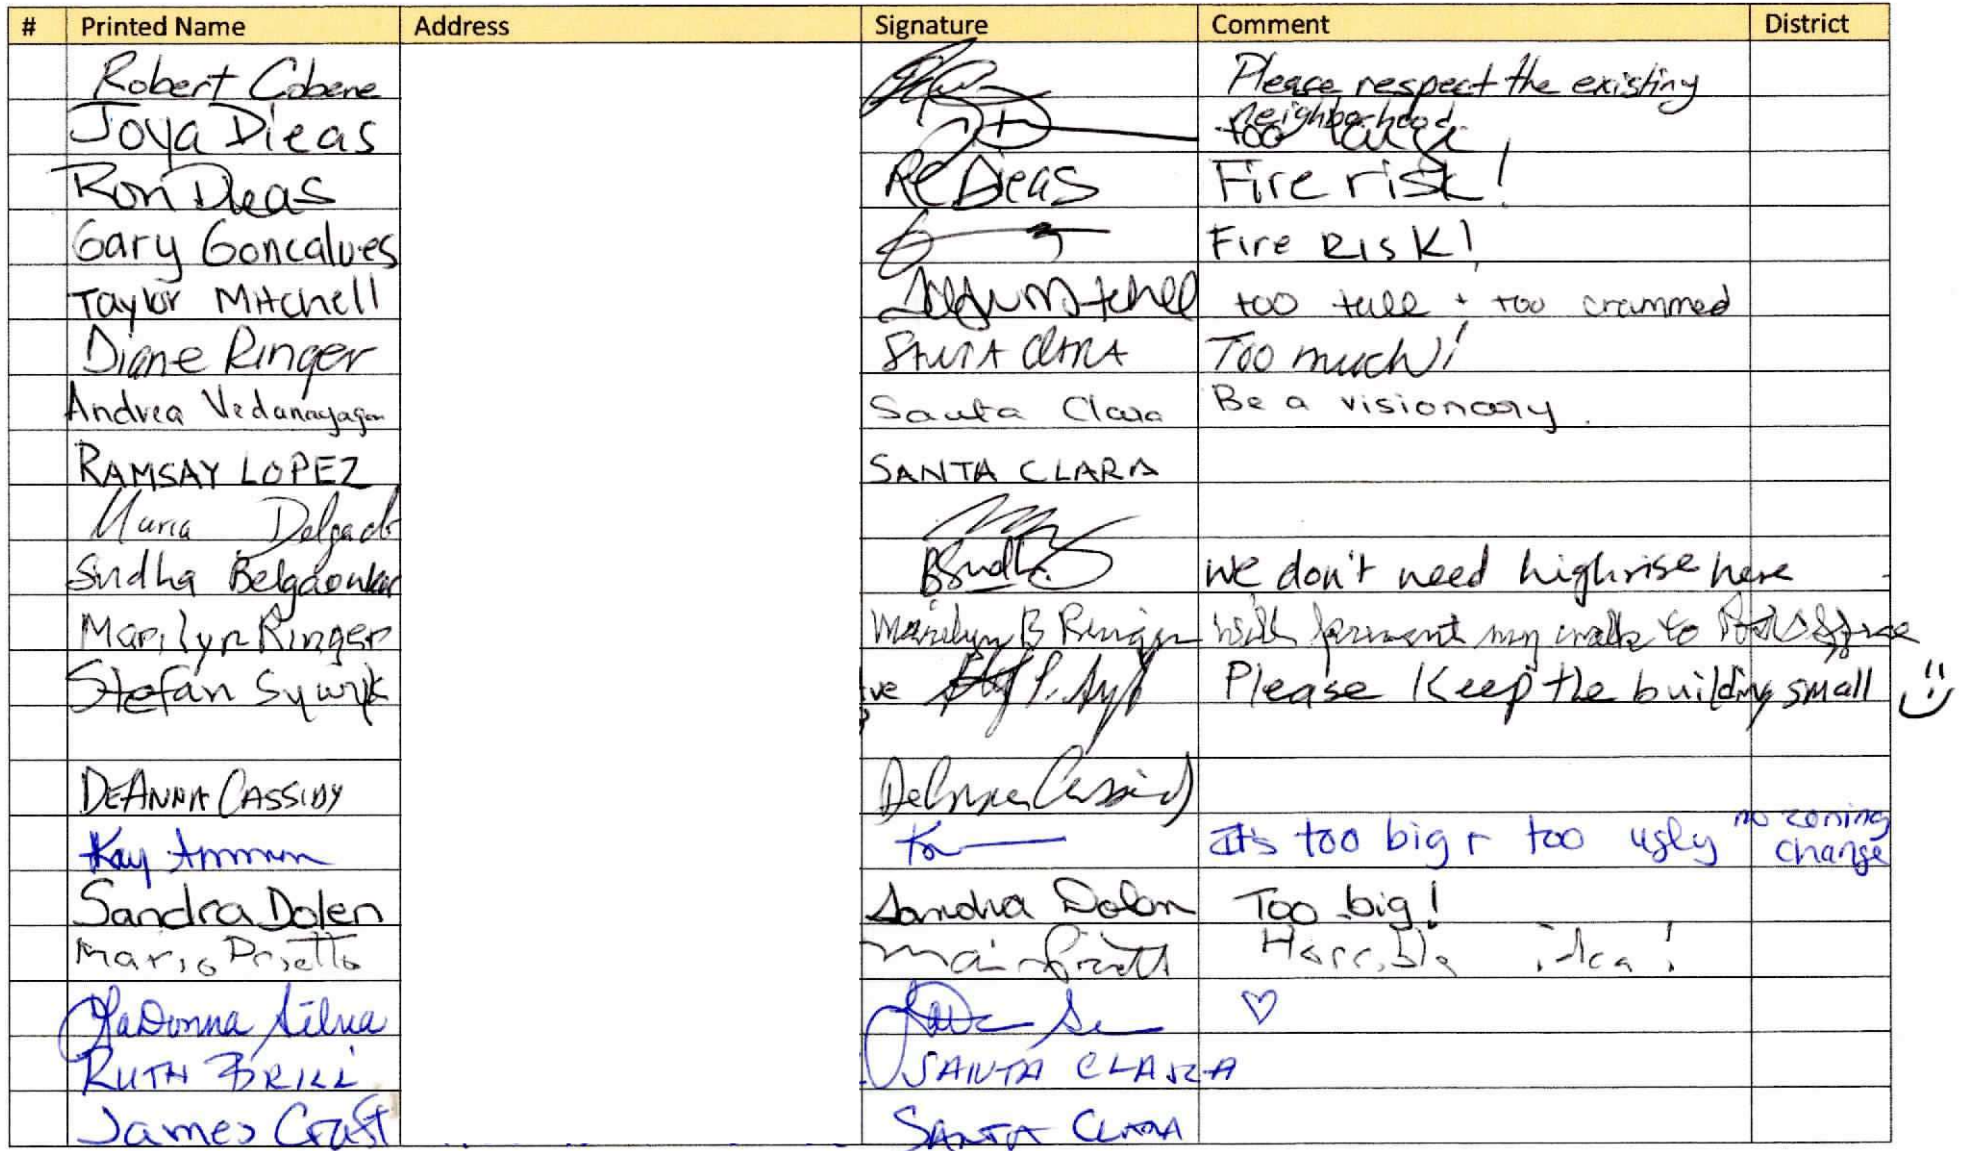 # Printed Name Address Signature Comment District
Robert Cobene Please respect the existing
neighborhood.
Joya Dieas too large
Ron Dieas RC Dieas Fire risk!
Gary Goncalves Fire RISK!
Taylor Mitchell Taylor Mitchell too tall + too crammed
Diane Ringer SANTA CLARA Too much!
Andrea Vedanayagam Santa Clara Be a visionary.
RAMSAY LOPEZ SANTA CLARA
Maria Delgado
Sudha Belgaonkar BSudha we don't need highrise here
Marilyn Ringer Marilyn B Ringer will torment my walk to Post Office
Stefan Sywyk ve Please Keep the building small
DEANNA CASSIDY DeAnna Cassidy
no zoning
Kay It's too big + too ugly change
Sandra Dolen Sandra Dolen Too big!
Mario Prietto Horrible idea!
LaDonna Silva ♡
RUTH BRILL SANTA CLARA
James Craft SANTA CLARA